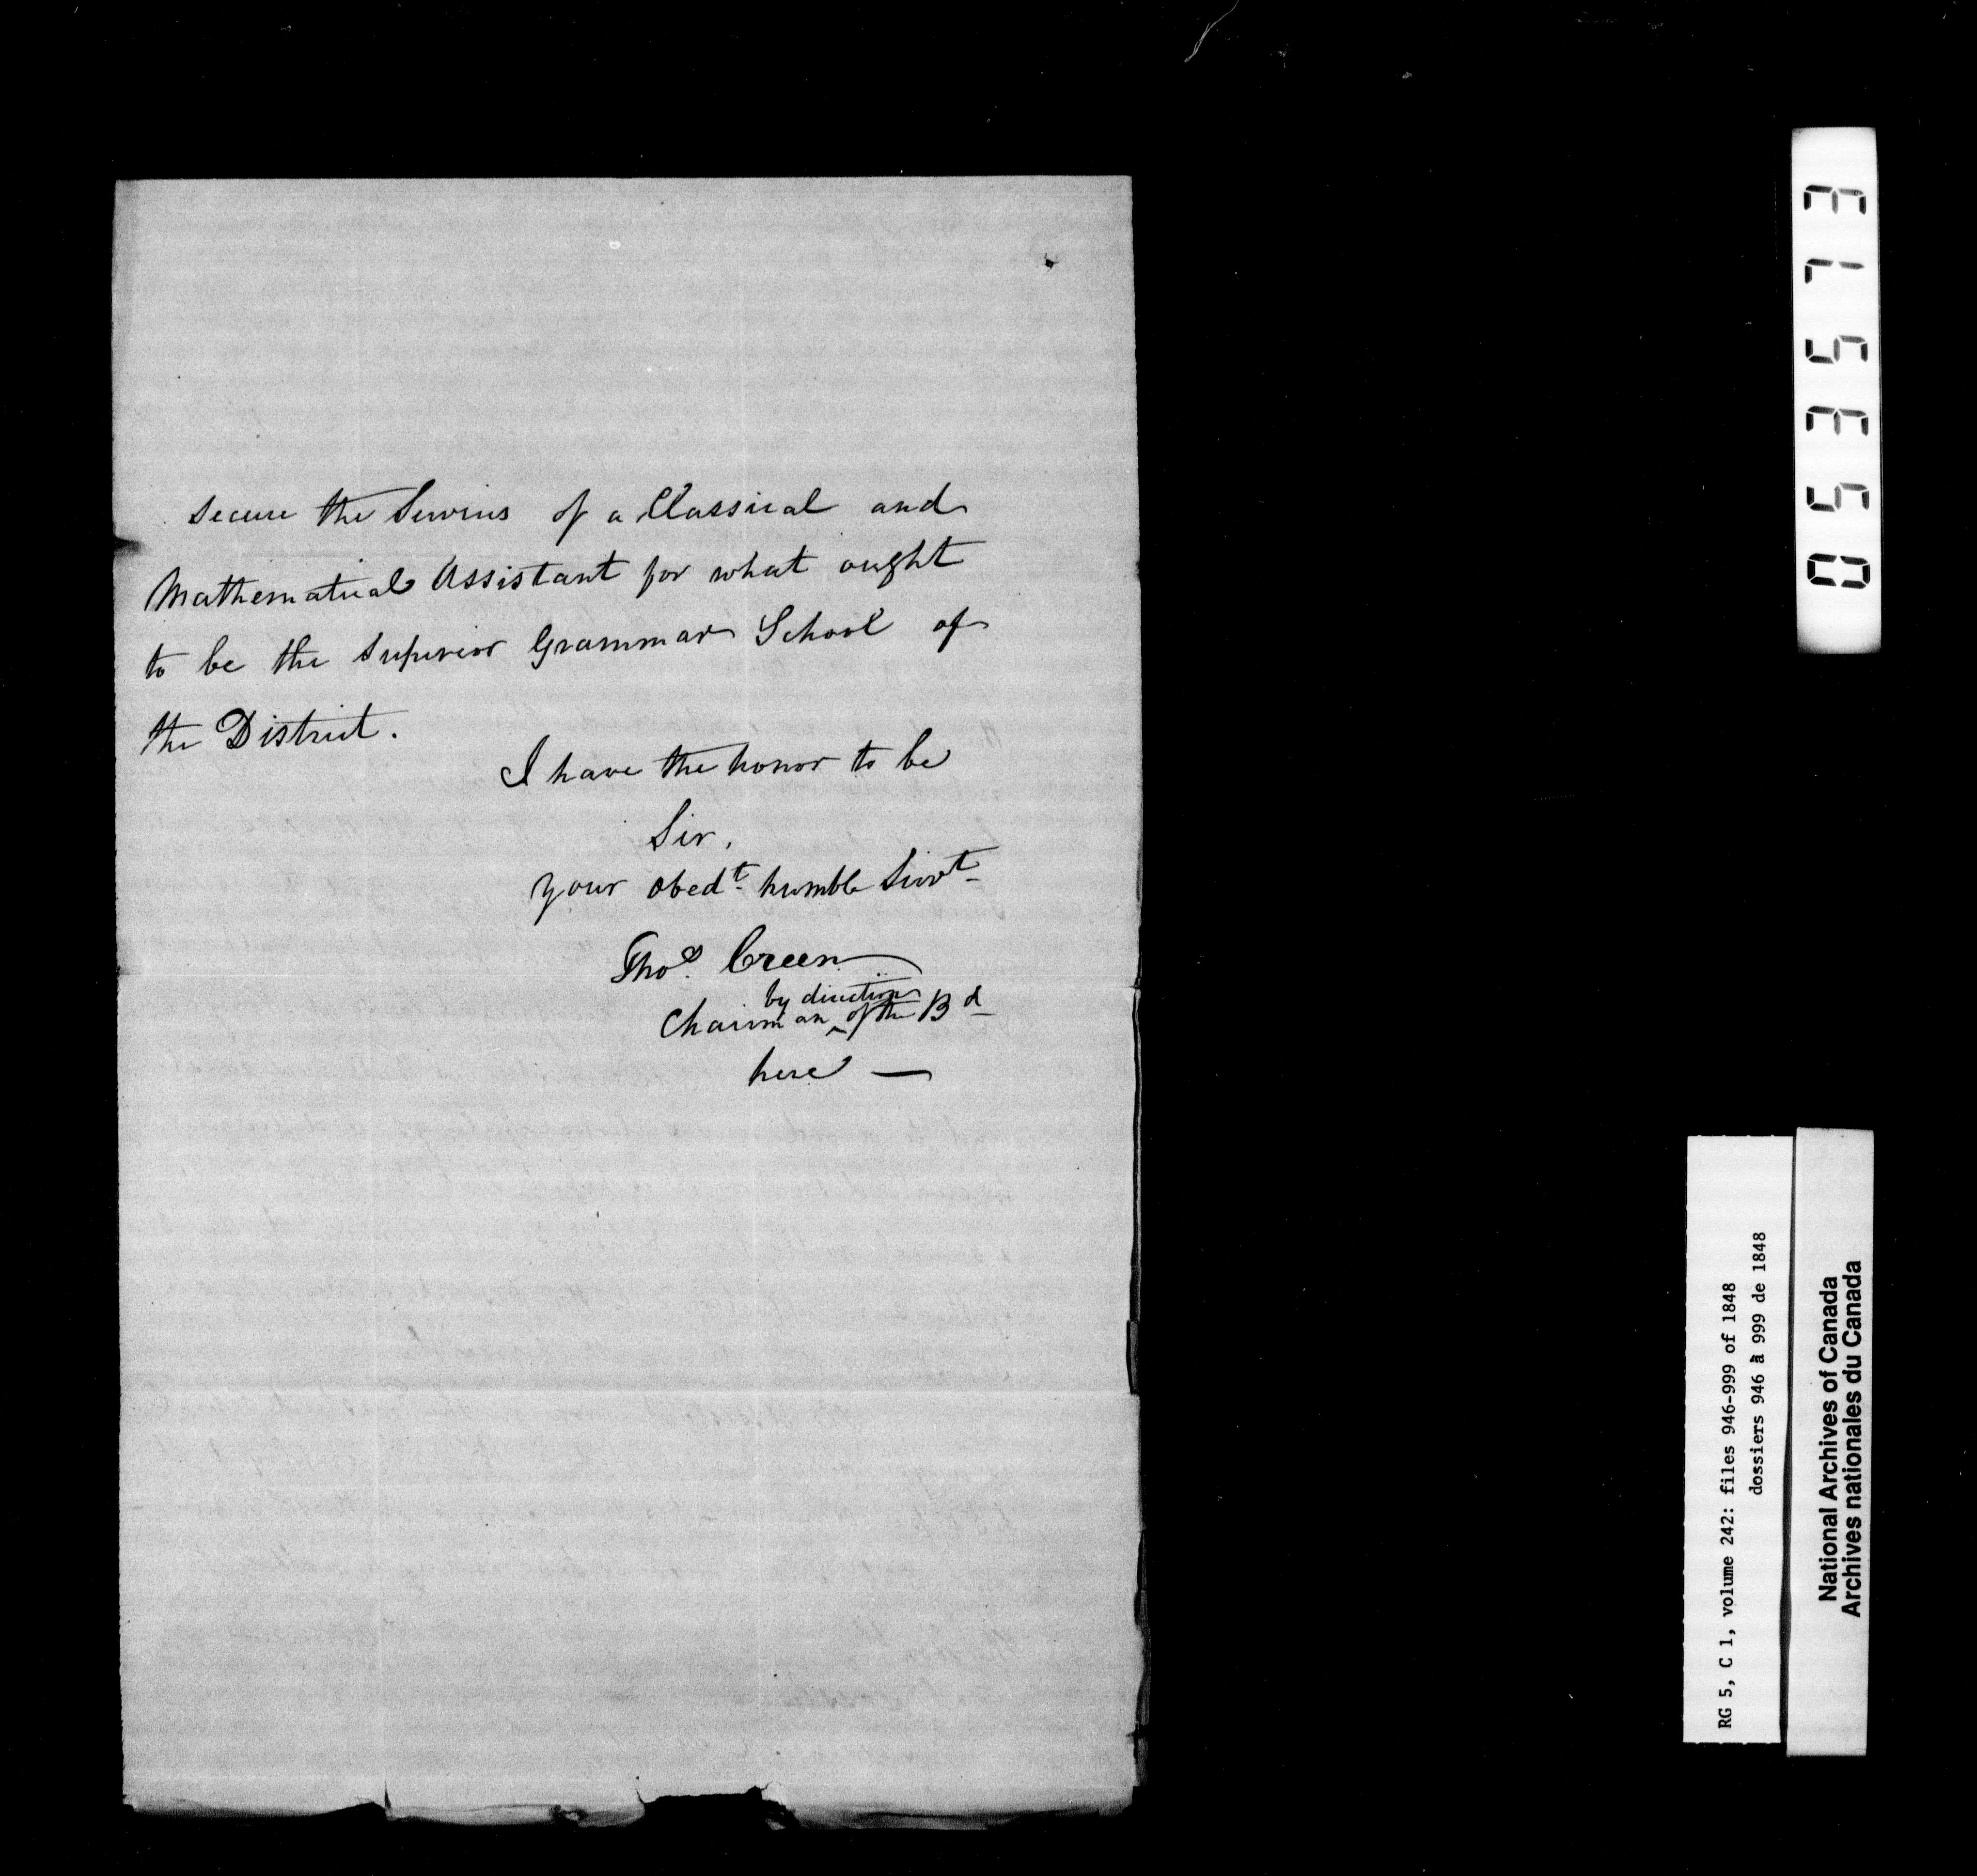 secure the Services of a Classical and
Mathematical Assistant for what ought
to be the Superior Grammar School of
the District.
I have the honor to be
Sir,
your obedt humble Servt
Thos. Creen
by direction
Chairman ^ of the Bd
here —
053573
RG 5, C 1, volume 242: files 946-999 of 1848
dossiers 946 à 999 de 1848
National Archives of Canada
Archives nationales du Canada